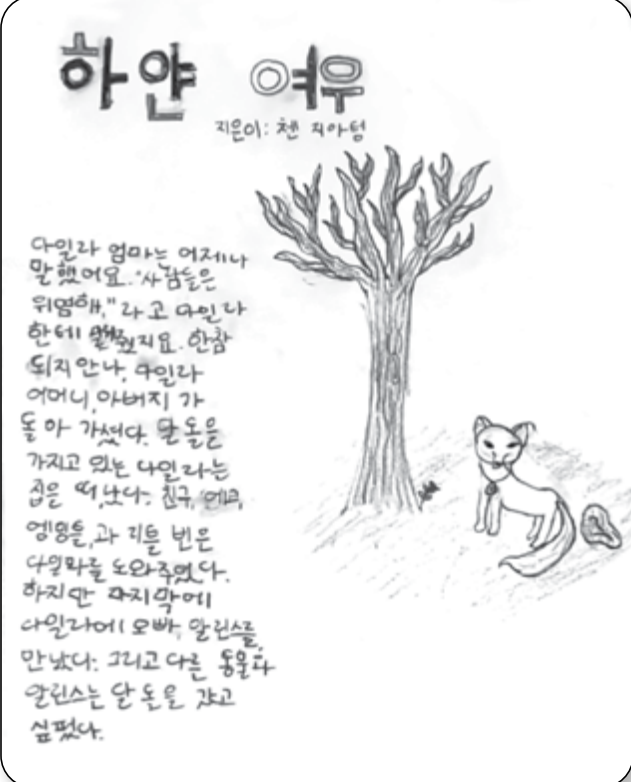 하얀 여우
지은이: 첸 지아텅
다일라 엄마는 어제나
말했어요. "사람들은
위염해," 라고 다일라
한테 했지요. 한참
되지 안나, 다일라
어머니, 아버지 가
돌아 가셨다. 달 돌을
가지고 있는 다일라는
집을 떠났다. 친구, 에코,
엥윙클, 과 리틀 빈은
다일라를 도와주었다.
하지만 마지막에
다일라에 오빠, 알린스를,
만났다. 그리고 다른 동물과
알린스는 달 돈을 갔고
싶펐다.